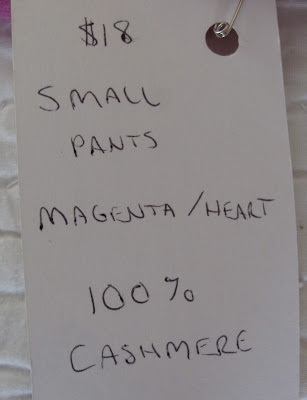 $18
SMALL
PANTS
MAGENTA/HEART
100%
CASHMERE